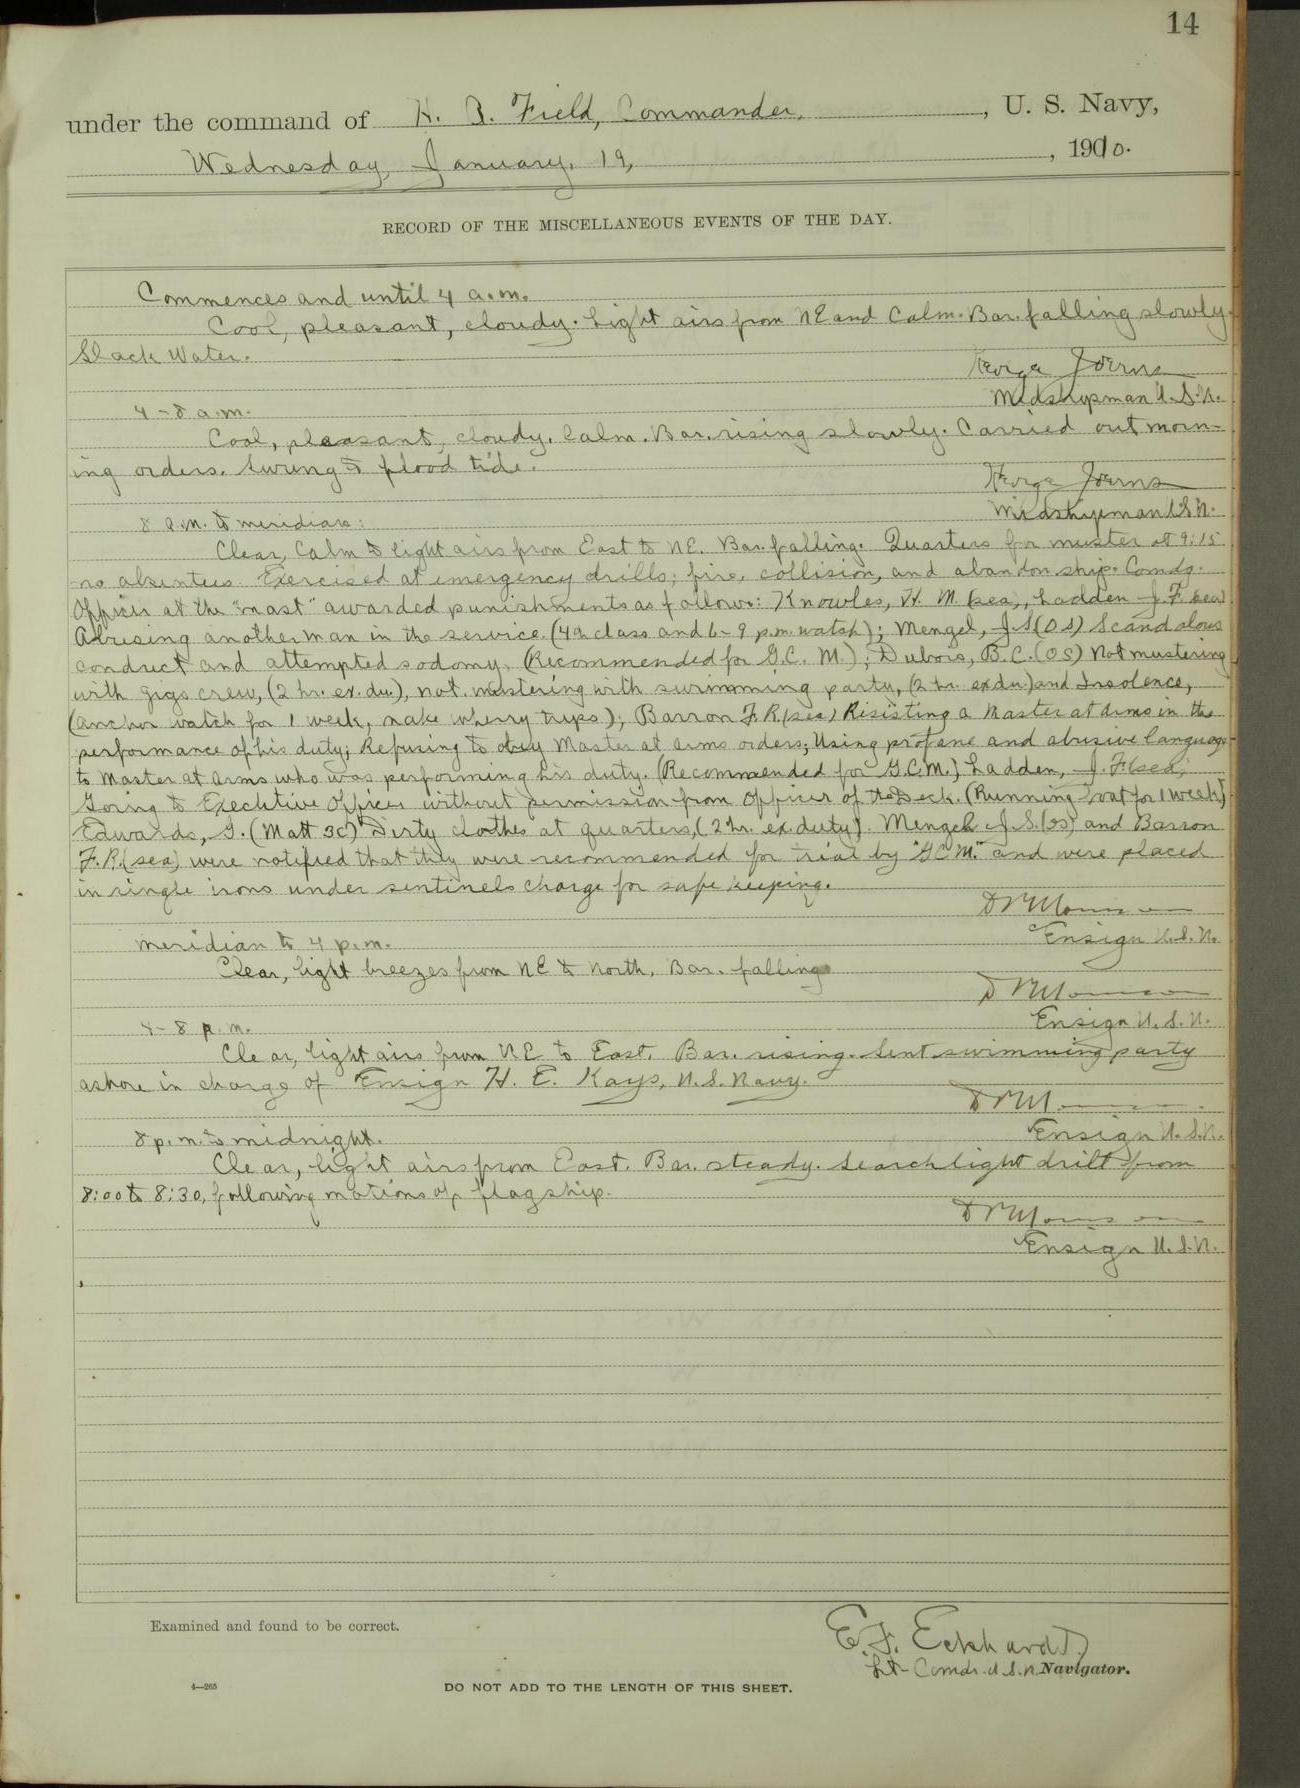 14
under the command of H. A. Field, Commander, , U. S. Navy,
Wednesday, January, 19, , 1910.
RECORD OF THE MISCELLANEOUS EVENTS OF THE DAY.
Commences and until 4 a.m.
Cool, pleasant, cloudy. Light airs from NE and Calm. Bar. falling slowly.
Slack Water.
George Joerns
Midshipman U.S.N.
4-8 a.m.
Cool, pleasant, cloudy. Calm. Bar. rising slowly. Carried out morn-
ing orders. Swung to flood tide.
George Joerns
Midshipman U.S.N.
8 a.m. to meridian:
Clear, Calm to light airs from East to NE. Bar. falling. Quarters for muster at 9:15
no absentees. Exercised at emergency drills; fire, collision, and abandon ship. Comdg.
Officer at the "mast" awarded punishments as follows: Knowles, H. M. (sea), Ladden J.F. (sea)
Abusing another man in the service. (4th class and 6-9 p.m. watch); Mengel, J.S. (OS) Scandalous
conduct and attempted sodomy. (Recommended for G.C.M.); Dubois, B.C. (OS) Not mustering
with gigs crew, (2 hr. ex. du.), not mustering with swimming party, (2 hr. ex du.) and Insolence,
(anchor watch for 1 week, make wherry trips); Barron F.R. (sea) Resisting a Master at Arms in the
performance of his duty; Refusing to obey Master at Arms orders; Using profane and abusive language
to Master at Arms who was performing his duty. (Recommended for G.C.M.), Ladden, J. F. (sea),
Going to Executive Officer without permission from Officer of the Deck. (Running boat for 1 week),
Edwards, G. (Matt 3c) Dirty clothes at quarters, (2 hr. ex. duty). Mengel J.S. (os) and Barron
F.R. (sea) were notified that they were recommended for trial by "G.C.M." and were placed
in single irons under sentinels charge for safe keeping.
Ensign U.S.N.
Meridian to 4 p.m.
Clear, light breezes from NE to North. Bar. falling
Ensign U.S.N.
4-8 p.m.
Clear, light airs from NE to East. Bar. rising. Sent swimming party
ashore in charge of Ensign H. E. Kays, U.S. Navy.
Ensign U.S.N.
8 p.m. to midnight.
Clear, light airs from East. Bar. steady. Searchlight drill from
8:00 to 8:30, following motions of flagship.
Ensign U.S.N.
Examined and found to be correct.
E. F. Eckhardt,
Lt-Comdr. U.S.N. Navigator.
4—265
DO NOT ADD TO THE LENGTH OF THIS SHEET.